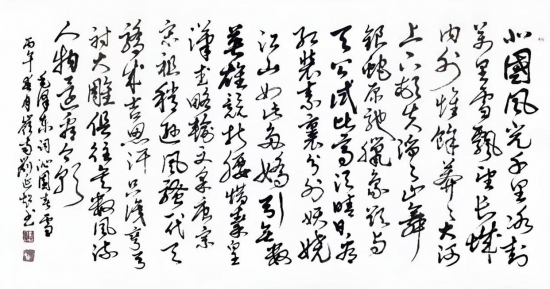 北國風光千里冰封
萬里雪飄望長城
内外惟餘莽々大河
上下頓失滔々山舞
銀蛇原馳臘象欲与
天公試比高須晴日看
紅裝素裹分外妖嬈
江山如此多嬌引無數
英雄競折腰惜秦皇
漢武略輸文采唐宗
宋祖稍遜風騷一代天
驕成吉思汗只識彎弓
射大雕俱往矣數風流
人物還看今朝
毛澤東詞沁園春雪
丙午春月